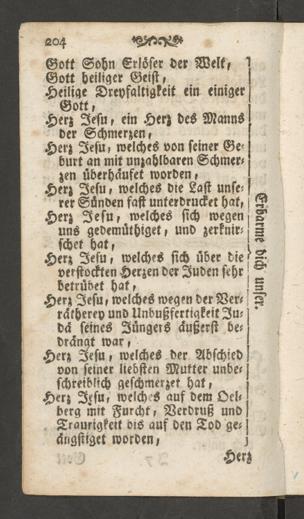 204
Gott Sohn Erlöser der Welt,
Gott heiliger Geist,
Heilige Dreyfaltigkeit ein einiger
Gott,
Herz Jesu, ein Herz des Manns
der Schmerzen,
Herz Jesu, welches von seiner Ge-
burt an mit unzahlbaren Schmer-
zen überhäufet worden,
Herz Jesu, welches die Last unse-
rer Sünden fast unterdrucket hat,
Herz Jesu, welches sich wegen
uns gedemüthiget, und zerknir-
schet hat,
Herz Jesu, welches sich über die
verstockten Herzen der Juden sehr
betrübet hat,
Herz Jesu, welches wegen der Ver-
rätherey und Unbußfertigkeit Ju-
dä seines Jüngers äußerst be-
drängt war,
Herz Jesu, welches der Abschied
von seiner liebsten Mutter unbe-
schreiblich geschmerzet hat,
Herz Jesu, welches auf dem Oel-
berg mit Furcht, Verdruß und
Traurigkeit bis auf den Tod ge-
ängstiget worden,
Erbarme dich unser.
Herz